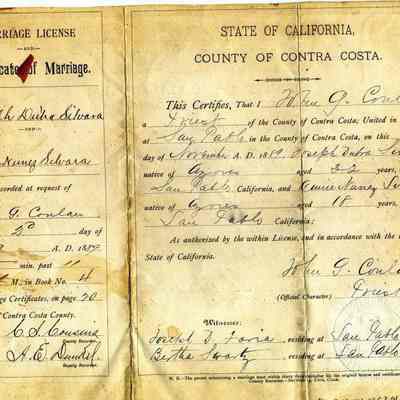 RRIAGE LICENSE
—AND—
cate of Marriage.
th Dutra Silvara
—AND—
Nunez Silvara
ecorded at request of
G. Conlan
2d day of
A. D. 18
min. past 11
M., in Book No. 4
ge Certificates, on page 20
Contra Costa County.
County Recorder.
A. E. Dunkel
Deputy Recorder.
STATE OF CALIFORNIA,
COUNTY OF CONTRA COSTA.
This Certifies, That I John G. Conl
a Priest of the County of Contra Costa, United in
at San Pablo in the County of Contra Costa, on this
day of November A. D. 18 Joseph Dutra Sil
native of Azores aged 32 years,
San Pablo California, and Nunez Sil
native of Azores aged 18 years,
San Pablo California;
As authorized by the within License, and in accordance with the
State of California.
John G. Conla
(Official Character) Priest
Witnesses:
Joseph D. Faria residing at San Pablo
Bertha Swartz residing at San Pablo
N. B.—The person solemnizing a marriage must within thirty days
County Recorder.